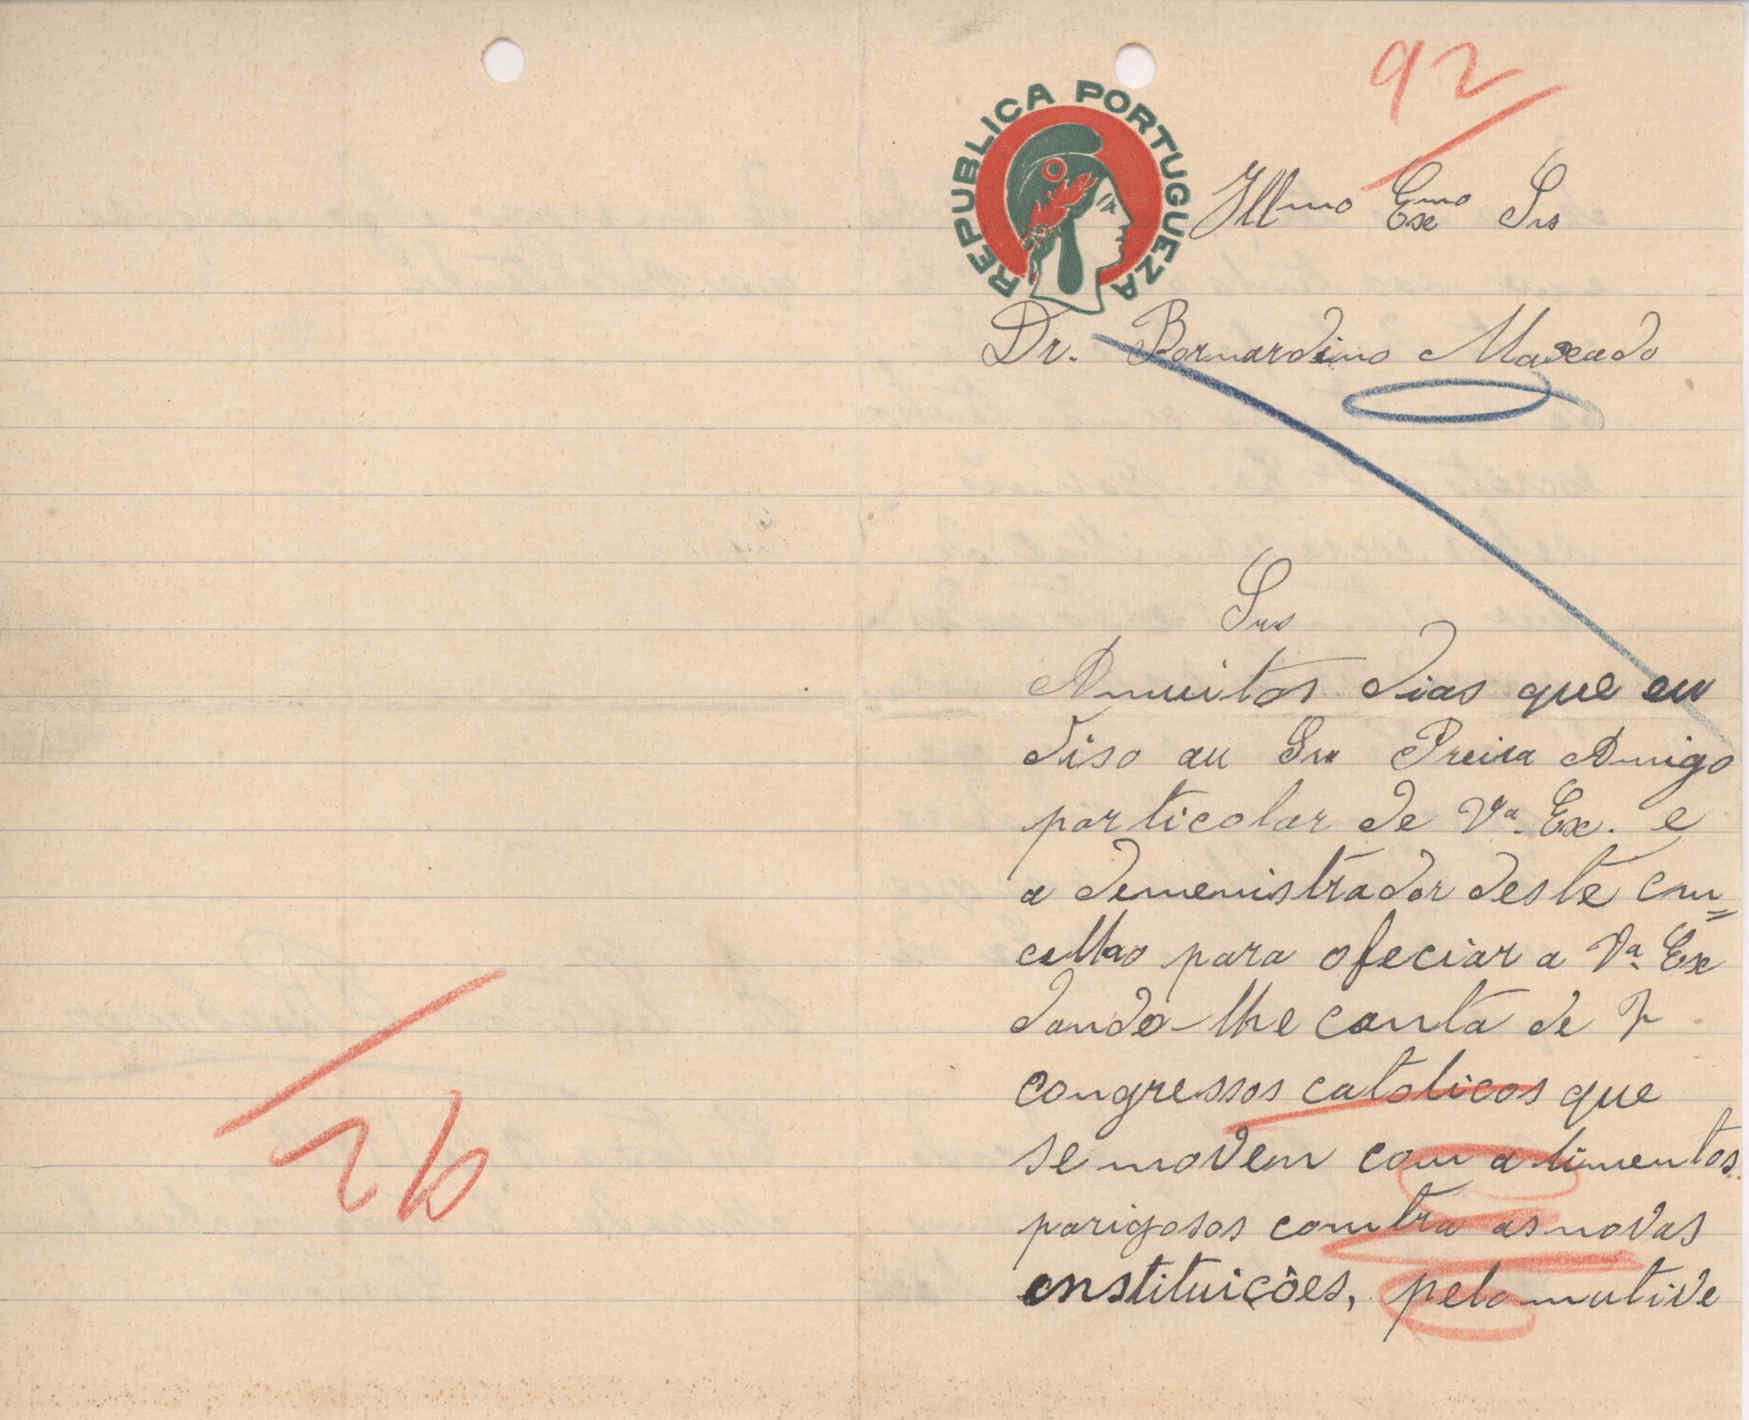 92
REPUBLICA PORTUGUEZA
Illmo Exmo Snr
Dr. Bernardino Maxado
Snr
Amuitos dias que eu
diso au Snr Preira Amigo
particolar de Vª. Ex. e
a demenistrador deste cun=
celhao para ofeciar a Vª. Ex
dando-lhe conta de 7
congressos catolicos que
se movem com a limentos
parigosos comtra as novas
enstituições, pelo mutive